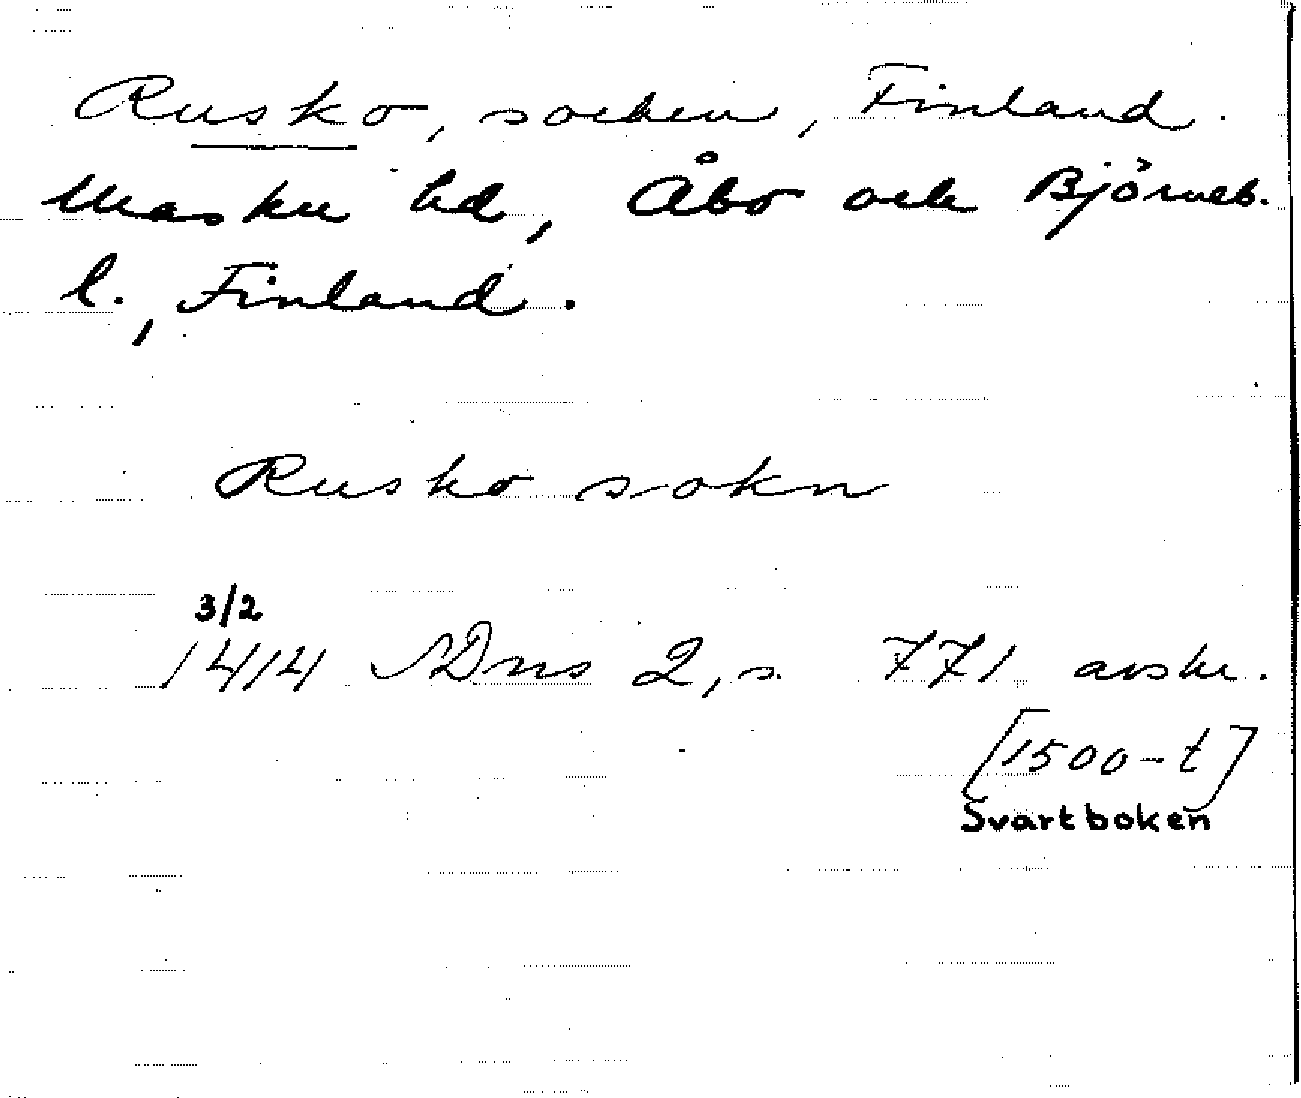 Rusko, socken, Finland.
Masku hd, Åbo och Björneb.
l., Finland.
Rusko sokn
3/2
1414 SDns 2, s. 771 avskr.
[1500-t]
Svartboken